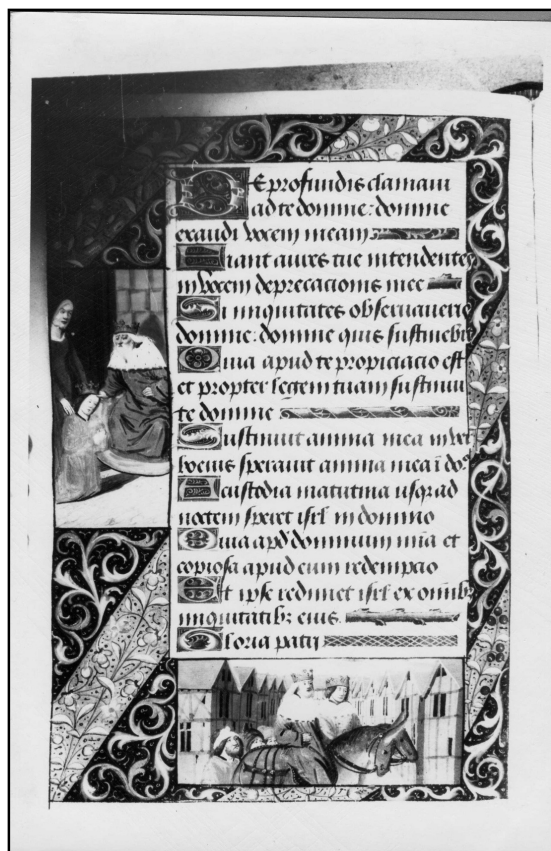 De profundis clamaui
ad te domine: domine
exaudi vocem meam
Fiant aures tue intendentes
in vocem deprecacionis mee
Si iniquitates obseruaueris
domine: domine quis sustinebit
Quia apud te propiciacio est
et propter legem tuam sustinui
te domine
Sustinuit anima mea in ver
bo eius sperauit anima mea ī dor̄
A custodia matutina usqꝫ ad
noctem speret isrl̄ in domino
Quia apd̄ dominum mīa et
copiosa apud eum redempcio
Et ipse redimet isrl̄ ex omībꝫ
iniquitatibꝫ eius.
Gloria patri